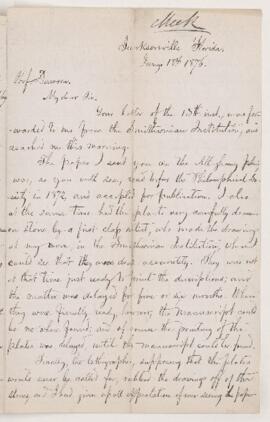 Meek
Jacksonville Florida,
Jany 18th 1876.
Prof
My dear Sir,
Your letter of the 13th inst, was for-
warded to me from the Smithsonian Institution, and
reached me this morning.
The paper I sent you on the
was, as you will see, read before the Philosophical So-
ciety in 1872, and accepted for publication. I also
at the same time had the plate very carefully drawn
on stone by a first class artist, who made the drawings
at my room, in the Smithsonian Institution, where I
could see that they were done accurately. They were not
at that time just ready to print the descriptions; and
the matter was delayed for five or six months. When
they were finally ready, however, the manuscript could
be no where found; and of course the printing of the
plates was delayed until the manuscript could be found.
Finally, the lithographer, supposing that the plates
would never be called for, rubbed the drawings off of the
stones, and I had given up all expectation of ever seeing the paper